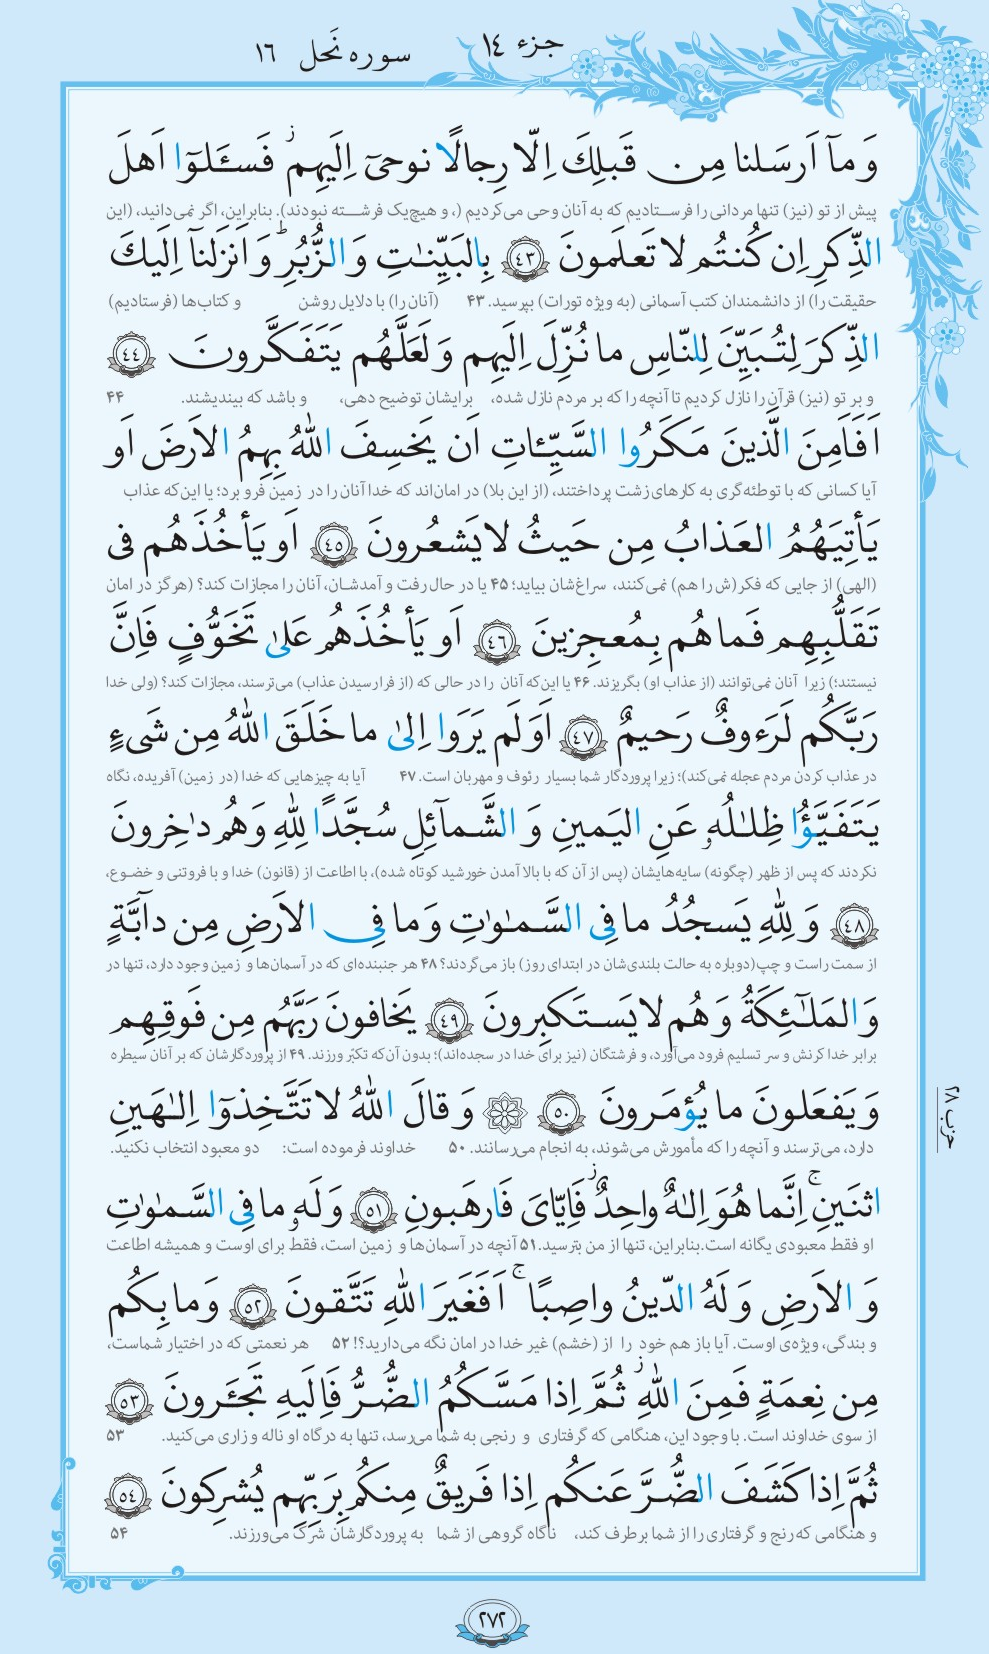 جزء ١٤
سوره نَحل ١٦
وَ مآ اَرسَلنا مِن قَبلِكَ اِلّا رِجالًا نوحیٓ اِلَیهِم ۚ فَسـَٔلوٓا اَهلَ
پیش از تو (نیز) تنها مردانی را فرستادیم که به آنان وحی می‌کردیم (، و هیچ‌یک فرشته نبودند). بنابراین، اگر نمی‌دانید، (این
الذِّکرِ اِن کُنتُم لا تَعلَمونَ ﴿٤٣﴾ بِالبَیِّنٰتِ وَ الزُّبُرِ ؕ وَ اَنزَلنآ اِلَیكَ
حقیقت را) از دانشمندان کتب آسمانی (به ویژه تورات) بپرسید. ۴۳ (آنان را) با دلایل روشن و کتاب‌ها (فرستادیم)
الذِّکرَ لِتُبَیِّنَ لِلنّاسِ ما نُزِّلَ اِلَیهِم وَ لَعَلَّهُم یَتَفَکَّرونَ ﴿٤٤﴾
و بر تو (نیز) قرآن را نازل کردیم تا آنچه را که بر مردم نازل شده، برایشان توضیح دهی، و باشد که بیندیشند. ۴۴
اَفَاَمِنَ الَّذینَ مَکَرُوا السَّیِّـٔاتِ اَن یَخسِفَ اللّٰهُ بِهِمُ الاَرضَ اَو
آیا کسانی که با توطئه‌گری به کارهای زشت پرداختند، (از این بلا) در امان‌اند که خدا آنان را در زمین فرو برد؛ یا این‌که عذاب
یَأتِیَهُمُ العَذابُ مِن حَیثُ لا یَشعُرونَ ﴿٤٥﴾ اَو یَأخُذَهُم فی
(الهی) از جایی که فکر(ش را هم) نمی‌کنند، سراغ‌شان بیاید؛ ۴۵ یا در حال رفت و آمدشان، آنان را مجازات کند؟ (هرگز در امان
تَقَلُّبِهِم فَما هُم بِمُعجِزینَ ﴿٤٦﴾ اَو یَأخُذَهُم عَلیٰ تَخَوُّفٍ فَاِنَّ
نیستند؛) زیرا آنان نمی‌توانند (از عذاب او) بگریزند. ۴۶ یا این‌که آنان را در حالی که (از فرا رسیدن عذاب) می‌ترسند، مجازات کند؟ (ولی خدا
رَبَّکُم لَرَءوفٌ رَحیمٌ ﴿٤٧﴾ اَوَلَم یَرَوا اِلیٰ ما خَلَقَ اللّٰهُ مِن شَیءٍ
در عذاب کردن مردم عجله نمی‌کند)؛ زیرا پروردگار شما بسیار رئوف و مهربان است. ۴۷ آیا به چیزهایی که خدا (در زمین) آفریده، نگاه
یَتَفَیَّؤُا ظِلٰلُهٗ عَنِ الیَمینِ وَ الشَّمآئِلِ سُجَّدًا لِلّٰهِ وَ هُم داخِرونَ
نکردند که پس از ظهر (چگونه) سایه‌هایشان (پس از آن که با بالا آمدن خورشید کوتاه شده)، با اطاعت از (قانون) خدا و با فروتنی و خضوع،
﴿٤٨﴾ وَ لِلّٰهِ یَسجُدُ ما فِی السَّمٰوٰتِ وَ ما فِی الاَرضِ مِن دآبَّةٍ
از سمت راست و چپ (دوباره به حالت بلندی‌شان در ابتدای روز) باز می‌گردند؟ ۴۸ هر جنبنده‌ای که در آسمان‌ها و زمین وجود دارد، تنها در
وَ المَلٰٓئِکَةُ وَ هُم لا یَستَکبِرونَ ﴿٤٩﴾ یَخافونَ رَبَّهُم مِن فَوقِهِم
برابر خدا کرنش و سر تسلیم فرود می‌آورد، و فرشتگان (نیز برای خدا در سجده‌اند)؛ بدون آن‌که تکبّر ورزند. ۴۹ از پروردگارشان که بر آنان سیطره
وَ یَفعَلونَ ما یُؤمَرونَ ﴿٥٠﴾ ۞ وَ قالَ اللّٰهُ لا تَتَّخِذوٓا اِلٰهَینِ
دارد، می‌ترسند و آنچه را که مأمورش می‌شوند، به انجام می‌رسانند. ۵۰ خداوند فرموده است: دو معبود انتخاب نکنید.
حزب ٢٨
اثنَینِ ۚ اِنَّما هُوَ اِلٰهٌ واحِدٌ ۚ فَاِیّایَ فَارهَبونِ ﴿٥١﴾ وَ لَهٗ ما فِی السَّمٰوٰتِ
او فقط معبودی یگانه است. بنابراین، تنها از من بترسید. ۵۱ آنچه در آسمان‌ها و زمین است، فقط برای اوست و همیشه اطاعت
وَ الاَرضِ وَ لَهُ الدّینُ واصِبًا ۚ اَفَغَیرَ اللّٰهِ تَتَّقونَ ﴿٥٢﴾ وَ ما بِکُم
و بندگی، ویژه‌ی اوست. آیا باز هم خود را از (خشم) غیر خدا در امان نگه می‌دارید؟! ۵۲ هر نعمتی که در اختیار شماست،
مِن نِعمَةٍ فَمِنَ اللّٰهِ ۚ ثُمَّ اِذا مَسَّکُمُ الضُّرُّ فَاِلَیهِ تَجـَٔرونَ ﴿٥٣﴾
از سوی خداوند است. با وجود این، هنگامی که گرفتاری و رنجی به شما می‌رسد، تنها به درگاه او ناله و زاری می‌کنید. ۵۳
ثُمَّ اِذا کَشَفَ الضُّرَّ عَنکُم اِذا فَریقٌ مِنکُم بِرَبِّهِم یُشرِکونَ ﴿٥٤﴾
و هنگامی که رنج و گرفتاری را از شما برطرف کند، ناگاه گروهی از شما به پروردگارشان شرک می‌ورزند. ۵۴
٢٧٢